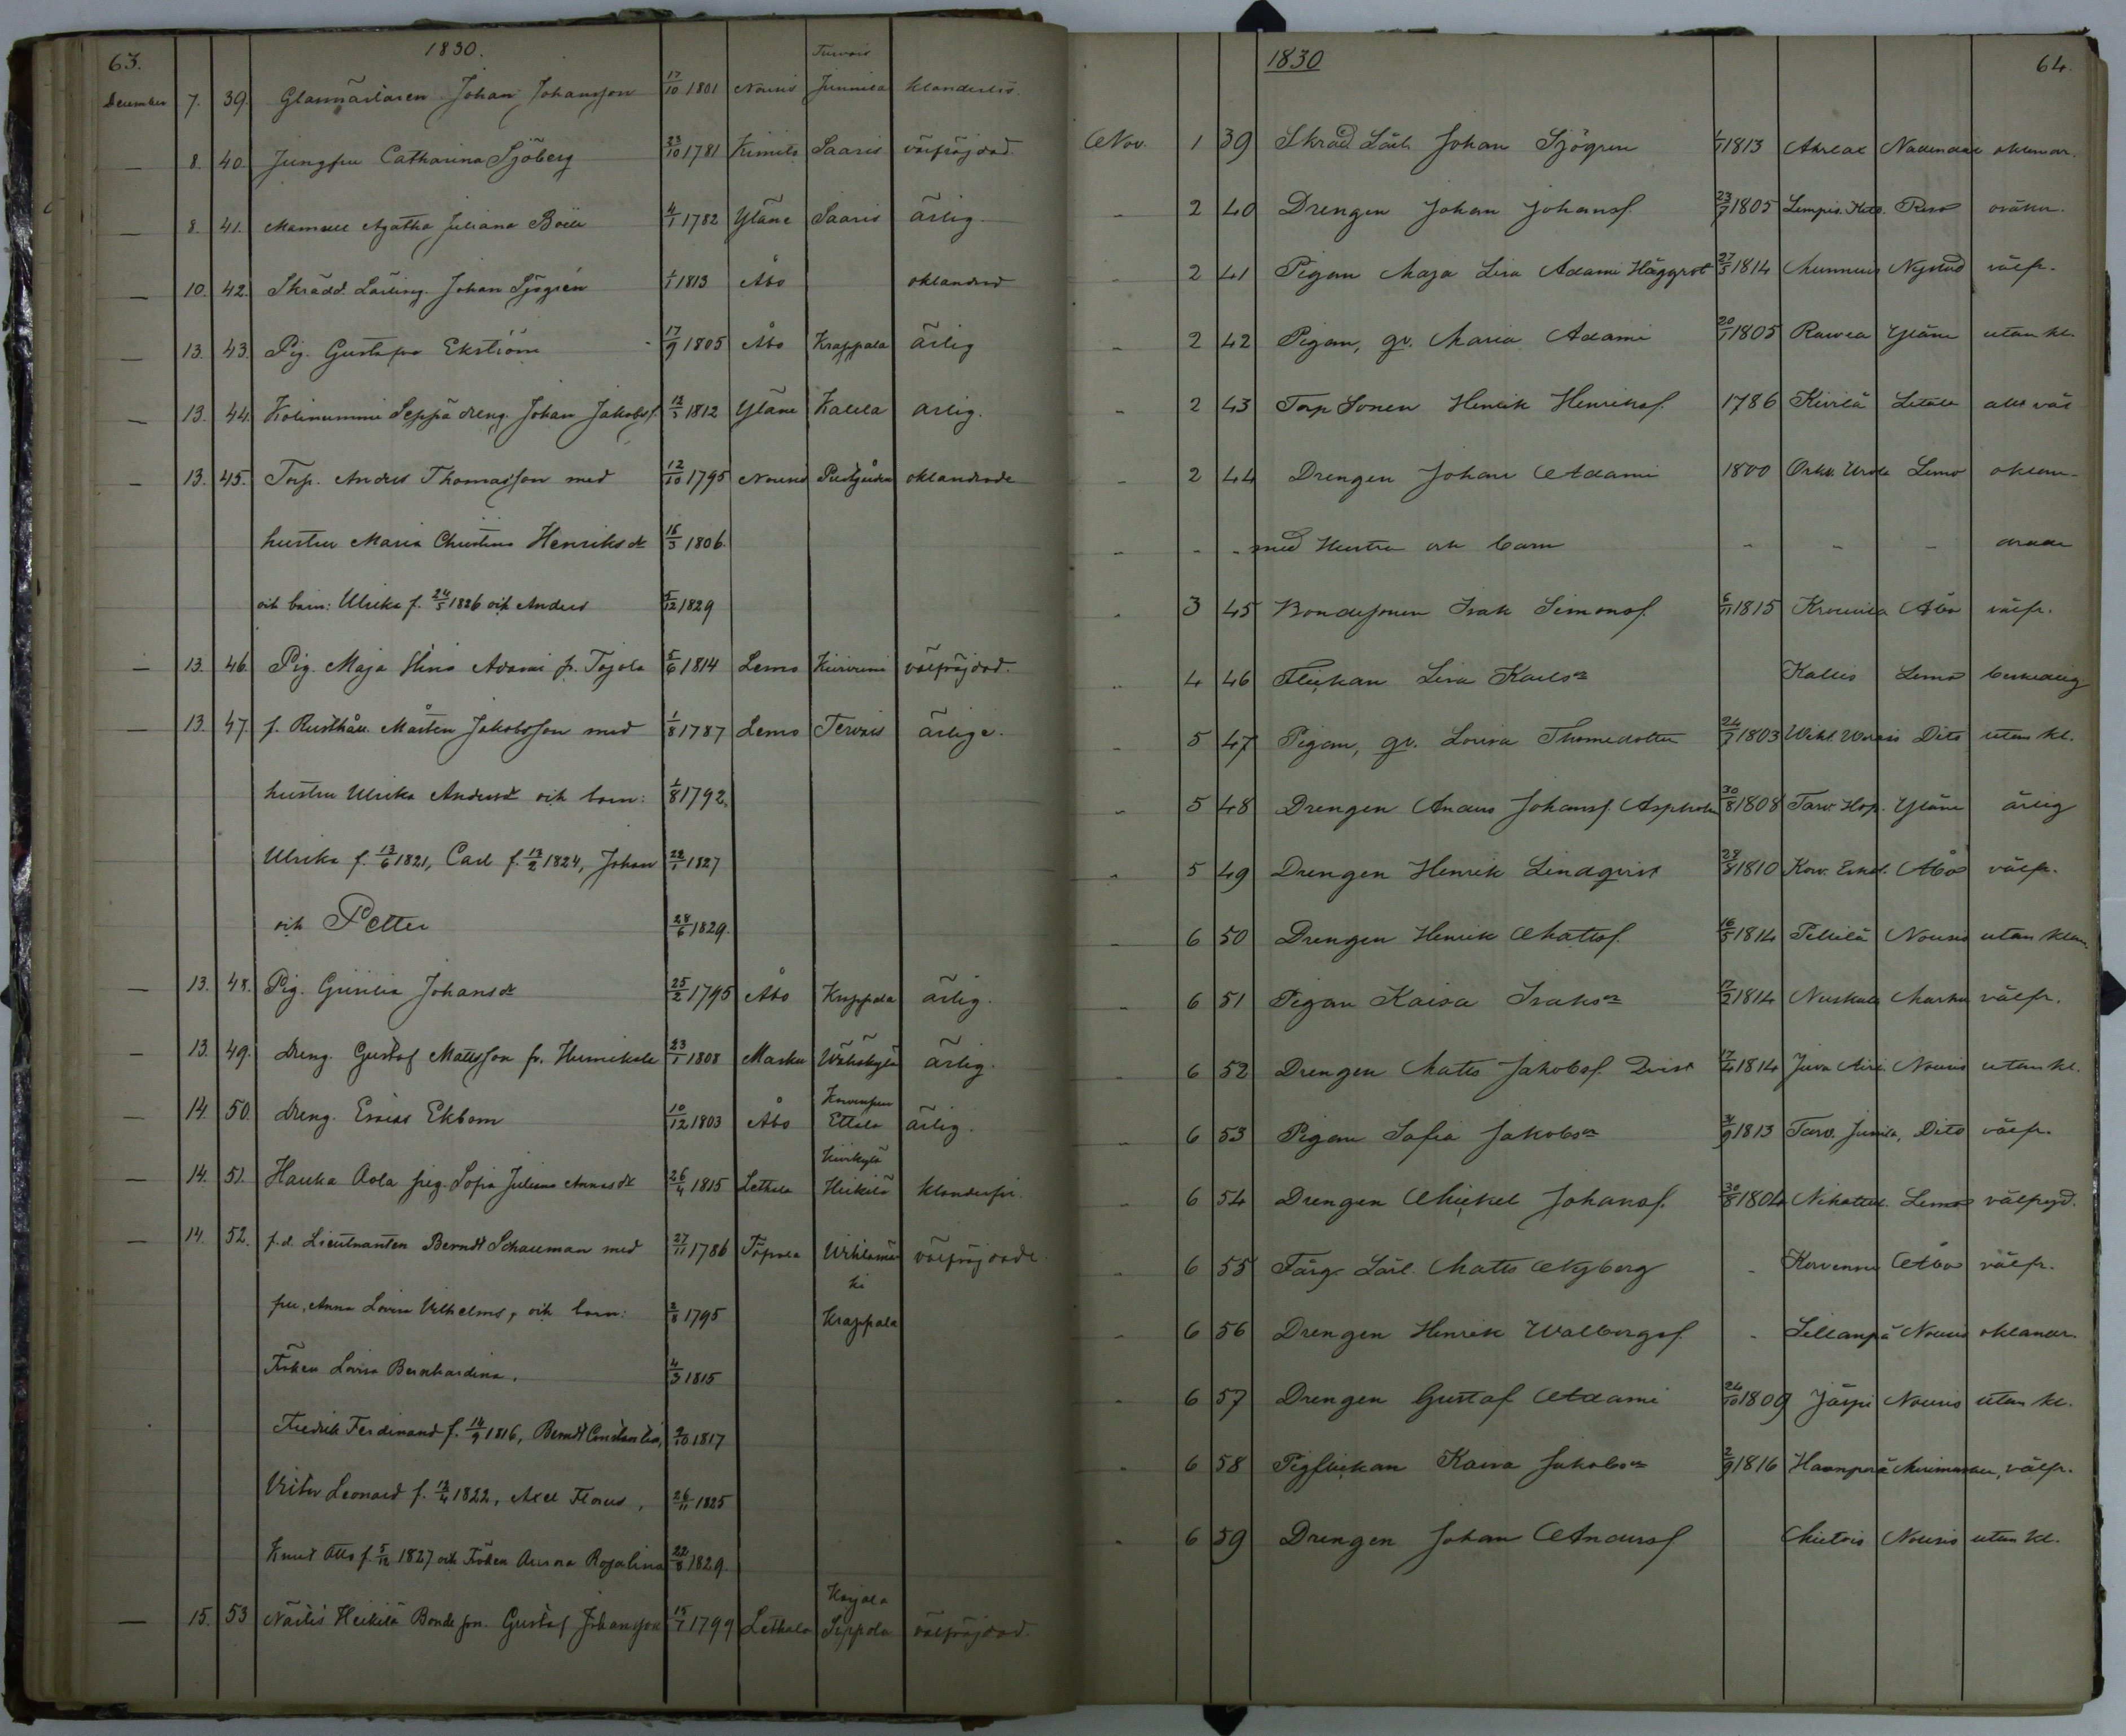 63.
1830.
December 7. 39. Glasmästaren Johan Johansson 17/10 1801 Nousis Tervois Junnila klanderlös.
— 8. 40. Jungfru Catharina Sjöberg 23/10 1781 Kimito Saaris välfräjdad.
— 8. 41. Mamsell Agatha Juliana Böck 4/1 1782 Yläne Saaris ärlig.
— 10. 42. Skrädd. Lärling. Johan Sjögrén 1/1 1813 Åbo oklandrad
— 13. 43. Pig. Gustafva Ekström 17/9 1805 Åbo Krappala ärlig
— 13. 44. Kolinummi Seppä dreng. Johan Jakobss. 12/3 1812 Yläne Kalela ärlig.
— 13. 45. Torp. Anders Thomasson med 12/10 1795 Nousis oklandrade
hustru Maria Christina Henriksdr 16/3 1806.
och barn: Ulrika f. 24/5 1826 och Anders 5/12 1829
— 13. 46. Pig. Maja Stina Adami fr. Tojola 5/6 1814 Lemo välfräjdad.
— 13. 47. f. Rusthåll. Mårten Jakobsson med 1/8 1787 Lemo Tervois ärlige.
hustru Ulrika Andersdr och barn: 1/8 1792.
Ulrika f. 13/6 1821, Carl f. 13/2 1824, Johan 22/1 1827
och Petter 28/6 1829.
— 13. 48. Pig. Johansdr 25/2 1795 Åbo Krappala ärlig.
— 13. 49. Dreng. Gustaf Matsson fr. Humikkala 23/1 1808 Masku Wähäkylä ärlig.
— 14. 50. Dreng. Ekbom 10/12 1803 Åbo Ettala ärlig.
— 14. 51. Hauka Aola pig. Sofia Juliana Annasdr 26/4 1815 Lethala Kivikylä Heikilä klanderfri.
— 14. 52. f.d. Lieutnanten Berndt Schauman med 27/11 1786 Töfsala välfräjdade.
fru, Anna Lovisa Vilhelms, och barn: 2/8 1795 Krappala
Fröken Lovisa Bernhardina. 4/3 1815
Fredrik Ferdinand f. 14/9 1816, Berndt Constantin, 2/10 1817
Viktor Leonard f. 13/4 1822, Axel Florus, 26/11 1825
Knut Otto f. 5/12 1827 och Fröken Aurora Rosalina 22/8 1829.
— 15. 53 Näilis Heikilä Bonde son. Gustaf Johansson 15/7 1799 Lethala Karjala Seppola välfräjdad.
1830
64.
Nov. 1 39 Skräd Lärl. Johan Sjögren 1/1 1813 Nådendal oklandr.
2 40 Drengen Johan Johanss. 23/7 1805 Reso
2 41 Pigan Maja Lisa Adami Häggrot 27/5 1814 Nystad välfr.
2 42 Pigan, gv. Maria Adami 20/1 1805 Yläne utan kl.
2 43 Torp Sonen Henrik Henrikss. 1786 Kivilä Letala allt väl
2 44 Drengen Johan Adami 1800 Lemo oklan-
- - - med Hustru och barn - - -
3 45 Bondesonen Isak Simonss. 6/11 1815 Åbo välfr.
4 46 Flickan Lisa Karlsdr Kallis Lemo beskedlig
5 47 Pigan, gv. Lovisa Thomedotter 24/7 1803 Dito utan kl.
5 48 Drengen Anders Johanss. Aspholm 30/8 1808 Yläne ärlig
5 49 Drengen Henrik Lindqvist 28/8 1810 Åbo välfr.
6 50 Drengen Henrik Mattss. 16/5 1814 Pellilä Nousis utan klan.
6 51 Pigan Kaisa Isaksdr 7/2 1814 Masku välfr.
6 52 Drengen Matts Jakobss. Qvist 17/4 1814 Nousis utan kl.
6 53 Pigan Sofia Jakobsdr 3/9 1813 Tarv. Junila, Dito välfr.
6 54 Drengen Mickel Johanss. 30/8 1804 Lemo välfrejd.
6 55 Färg. Lärl. Matts Nyberg - Åbo välfr.
6 56 Drengen Henrik Walborgss. - Sillanpä Nousis oklandr.
6 57 Drengen Gustaf Adami 24/10 1809 Järpi Nousis utan kl.
6 58 Pigflickan Kaisa Jakobsdr 2/9 1816 Haanperä välfr.
6 59 Drengen Johan Anderss. Mietois Nousis utan kl.